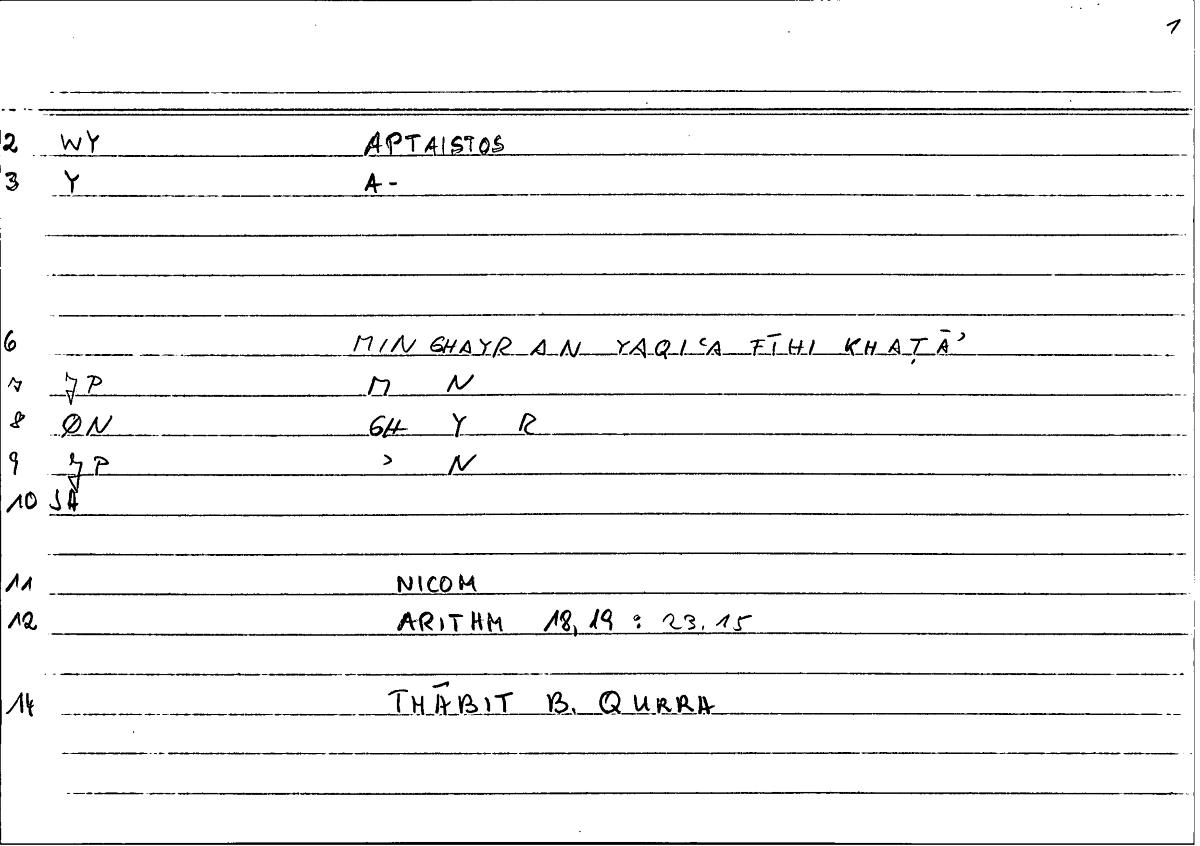 1
2 WY APTAISTOS
3 Y A-
6 MIN GHAYR AN YAQIʿA FĪHI KHAṬĀʾ
7 P M N
8 ØN GH Y R
9 P ʾ N
10 JA
11 NICOM
12 ARITHM 18,19 : 23.15
14 THĀBIT B. QURRA